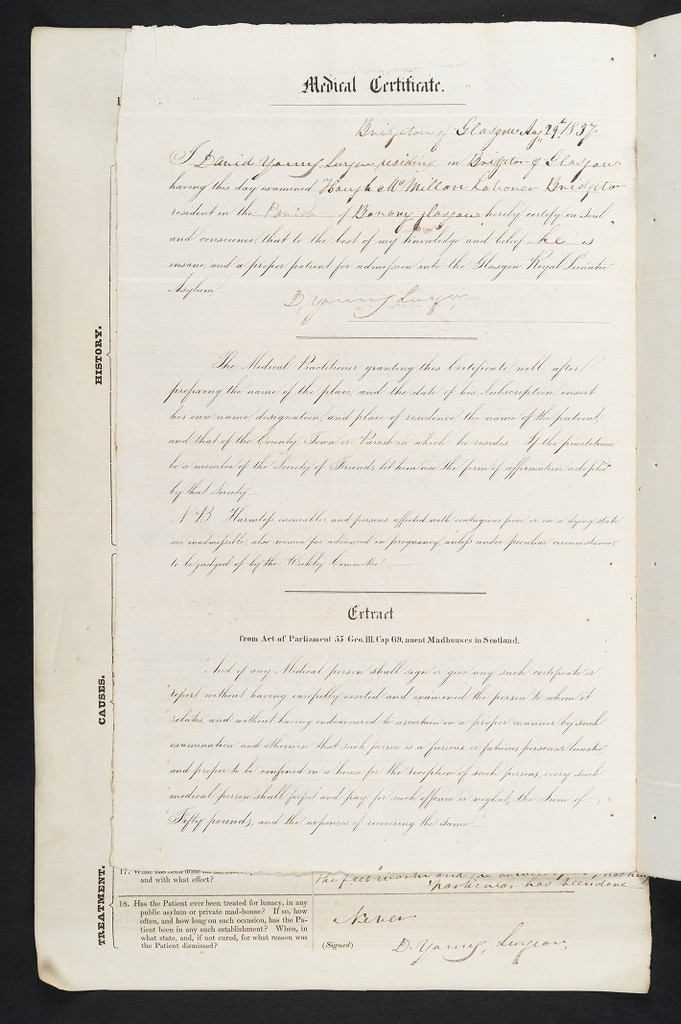 Medical Certificate.
Bridgeton of Glasgow Aug 29th 1837
I David Young Surgeon residing in Bridgeton of Glasgow
having this day examined Heugh McMillan Laborer Bridgeton
resident in the Parish of Barony glasgow hereby certify on soul
and conscience, that to the best of my knowledge and belief he is
insane, and a proper patient for admission into the Glasgow Royal Lunatic
Asylum
D. Young Surgeon
The Medical Practitioner granting this Certificate will, after
prefixing the name of the place, and the date of his Subscription, insert
his own name, designation, and place of residence, the name of the patient,
and that of the County, Town or Parish in which he resides. If the practitioner
be a member of the Society of Friends, let him use the form of affirmation adopted
by that Society.
NB Harmless incurables and persons affected with contagious fever or in a dying state
are inadmissible, also women far advanced in pregnancy unless under peculiar circumstances
to be judged of by the Weekly Committee.
Extract
from Act of Parliament 55 Geo. III. Cap 69, anent Madhouses in Scotland.
And if any Medical person shall sign or give any such certificate or
report without having carefully visited and examined the person to whom it
relates, and without having endeavoured to ascertain in a proper manner by such
examination and otherwise that such person is a furious or fatuous person or lunatic
and proper to be confined in a house for the reception of such persons, every such
medical person shall forfeit and pay for such offence or neglect, the Sum of
Fifty pounds, and the expenses of recovering the same.
HISTORY.
CAUSES.
TREATMENT.
17. What has been done
and with what effect?
particular has been done
18. Has the Patient ever been treated for lunacy, in any
public asylum or private mad-house? If so, how
often, and how long on each occasion, has the Pa-
tient been in any such establishment? When, in
what state, and, if not cured, for what reason was
the Patient dismissed?
Never
(Signed) D. Young, Surgeon,